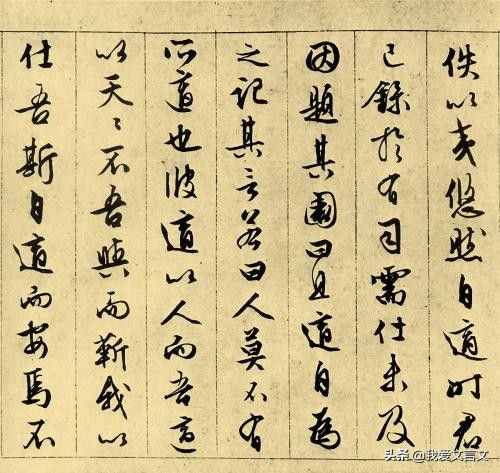 佚以夷悠然自適时君
已録於有司需仕未及
因題其園曰且適自為
之記其言若曰人莫不有
所適也彼適以人而吾適
以天〻不吾與而靳我以
仕吾斯自適而安焉不
头条 @我爱文言文